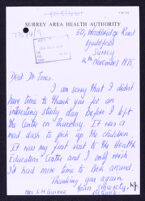 SURREY AREA HEALTH AUTHORITY
50, Woodbridge Road
Guildford
Surrey
November 1975
Dear Dr Jones
I am sorry that I didn't
have time to thank you for an
interesting study day before I left
the Centre on Thursday. It was a
mad dash to pick up the children.
It was my first visit to the Health
Education Center and I only wish
I'd had more time to look around.
Thanking you again.
Yours sincerely,